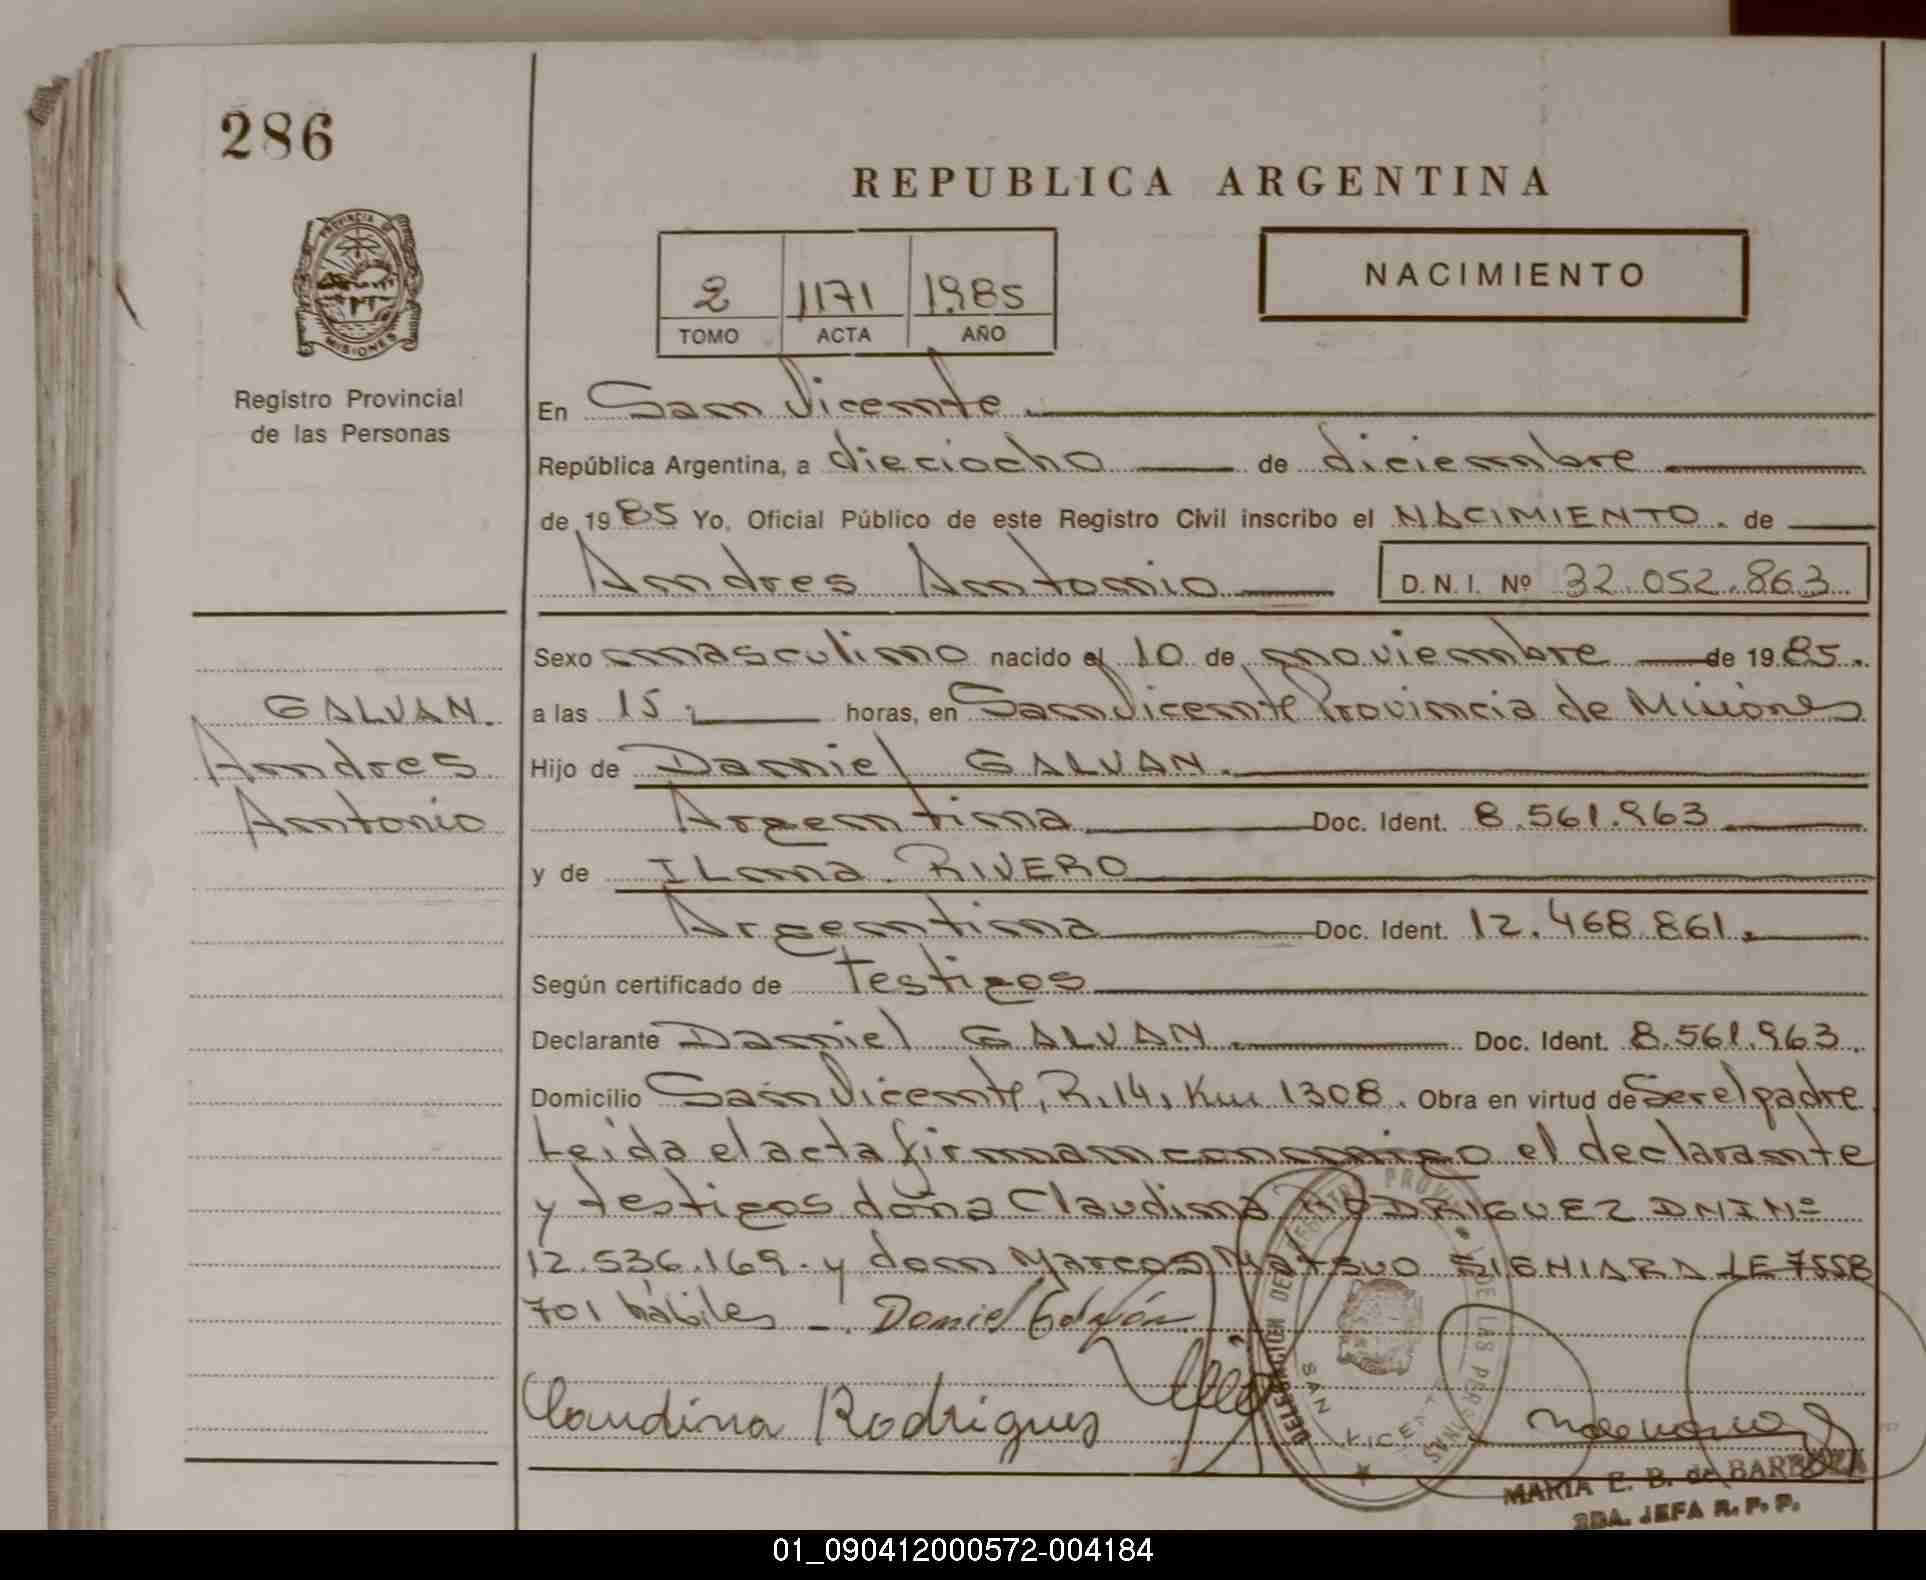 286
REPUBLICA ARGENTINA
PROVINCIA DE
MISIONES
2 1171 1985
TOMO ACTA AÑO
NACIMIENTO
Registro Provincial
de las Personas
En San Vicente.
República Argentina, a dieciocho de diciembre
de 1985 Yo, Oficial Público de este Registro Civil inscribo el NACIMIENTO. de
Andres Antonio D. N. I. Nº 32.052.863
Sexo masculino nacido el 10 de noviembre de 1985.
GALVAN.
a las 15. horas, en San Vicente Provincia de Misiones
Andres
Hijo de Daniel GALVAN.
Antonio
Argentina Doc. Ident. 8.561.963
y de ILma. RIVERO
Argentina Doc. Ident. 12.468.861.
Según certificado de testigos
Declarante Daniel GALVAN. Doc. Ident. 8.561.963.
Domicilio San Vicente, R.14, Km 1308. Obra en virtud de Ser el padre
Leida el acta firman conmigo el declarante
y testigos doña Claudina RODRIGUEZ DNI Nº
12.536.169. y don Marcos MATSUO LE 7558
701 hábiles -. Daniel Galván
Claudina Rodrigues
DELEGACION
SAN VICENTE
DE LAS PERSONAS
MARIA E. B. de BARBOZA
JEFA R. P. P.
01_090412000572-004184